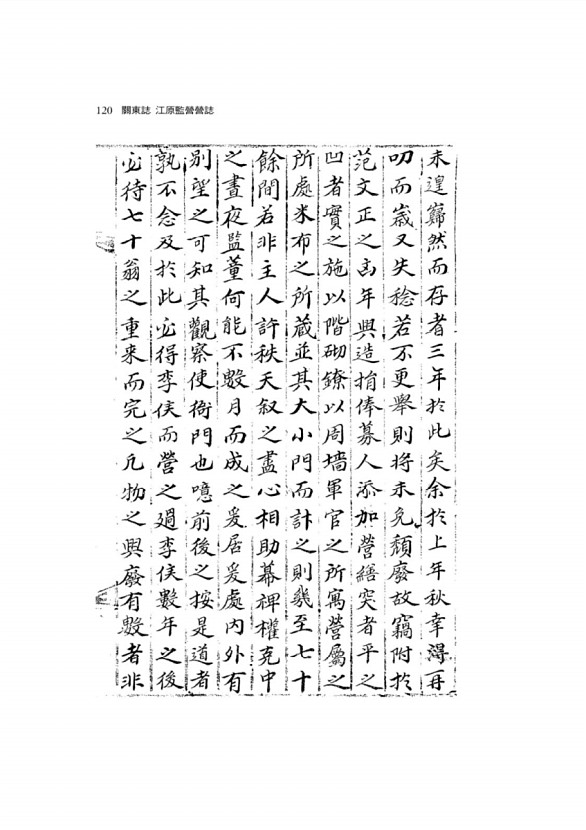 120 關東誌 江原監營營誌
未遑巋然而存者三年於此矣余於上年秋幸淂再
叨而嵗又失稔若不更舉則将未免頹廢故竊附於
范文正之凶年興造捐俸募人添加營繕突者平之
凹者實之施以階砌繚以周墻軍官之所寓營屬之
所處米布之所蔵並其大小門而計之則幾至七十
餘間若非主人許秩天叙之盡心相助幕裨權克中
之晝夜監董何能不數月而成之爰居爰處内外有
別望之可知其觀察使衙門也噫前後之按是道者
孰不念及於此必得李侯而營之過李侯數年之後
必待七十翁之重来而完之凡物之興廢有數者非